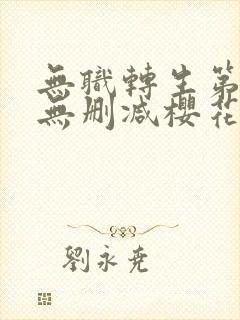 無職轉生第
無刪減櫻花
劉永堯